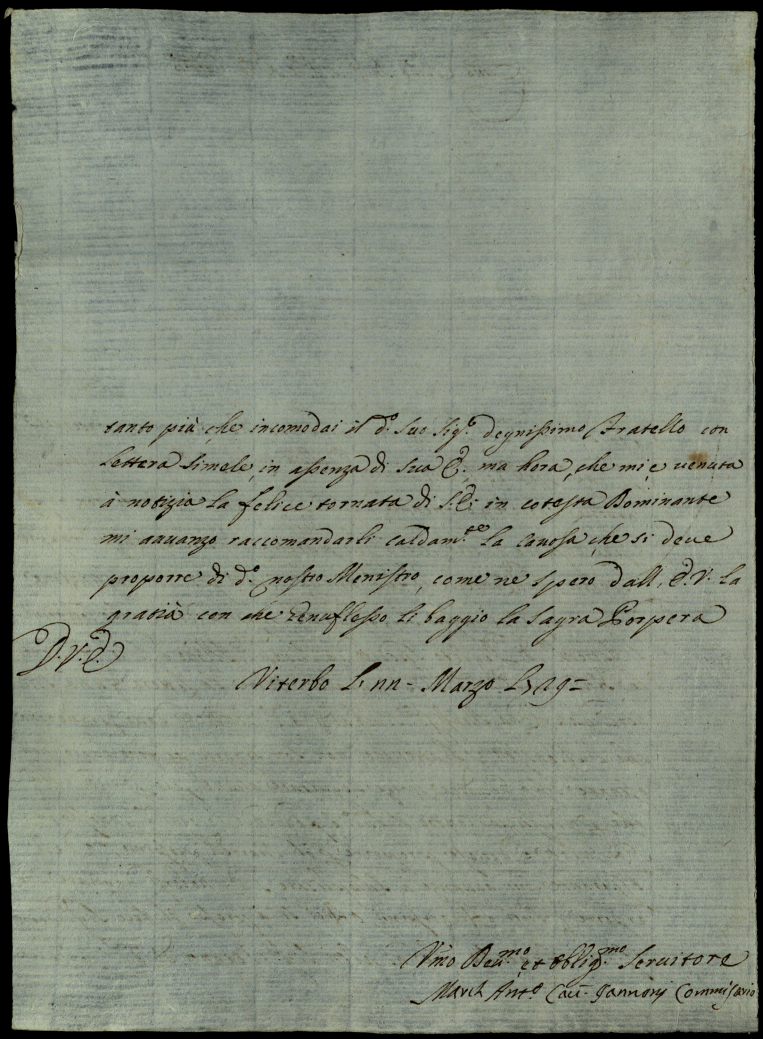 tanto più che incomodai il d.º suo Sig.e degnissimo Fratello con
lettera simele, in assenza di sua E. ma hora, che mi è venuta
à notizia la felice tornata di S.E. in cotesta Dominante
mi avvanzo raccomandarli caldam.te la causa, che si deve
proporre di d.º nostro Menistro, come ne spero dall, E.V. la
gratià con che genuflesso li baggio la sagra Porpera
D.V.E.
Viterbo Marzo
Vmo Deu.mo et oblig.mo Seruitore
Marck Ant.º Commissario